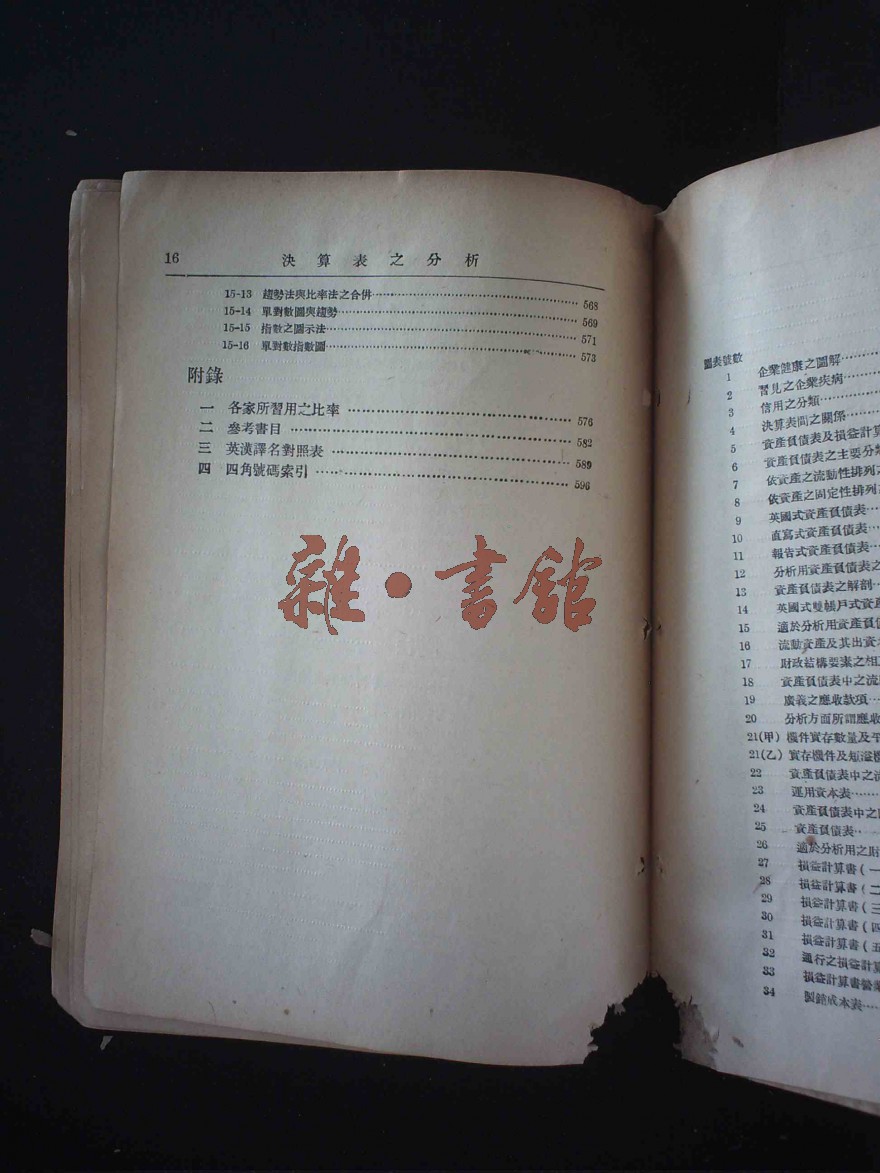 16 決算表之分析
15-13 趨勢法與比率法之合併 568
15-14 單對數圖與趨勢 569
15-15 指數之圖示法 571
15-16 單對數指數圖 573
附錄
一 各家所習用之比率 576
二 參考書目 582
三 英漢譯名對照表 589
四 四角號碼索引 596
雜·書館
圖表號數
1 企業健康之圖解
2 習見之企業疾病
3 信用之分類
4 決算表間之關係
5 資產負債表及損益計算
6 資產負債表之主要分類
7 依資產之流動性排列之
8 依資產之固定性排列之
9 英國式資產負債表
10 直寫式資產負債表
11 報告式資產負債表
12 分析用資產負債表之
13 資產負債表之解剖
14 英國式雙帳戶式資產
15 適於分析用資產負債
16 流動資產及其出資
17 財政結構要素之相互
18 資產負債表中之流
19 廣義之應收款項
20 分析方面所謂應收
21(甲) 機件實存數量及平
21(乙) 實存機件及短溢
22 資產負債表中之
23 運用資本表
24 資產負債表中之
25 資產負債表
26 適於分析用之財
27 損益計算書(一
28 損益計算書(二
29 損益計算書(三
30 損益計算書(四
31 損益計算書(五
32 通行之損益計算
33 損益計算書營業
34 製銷成本表